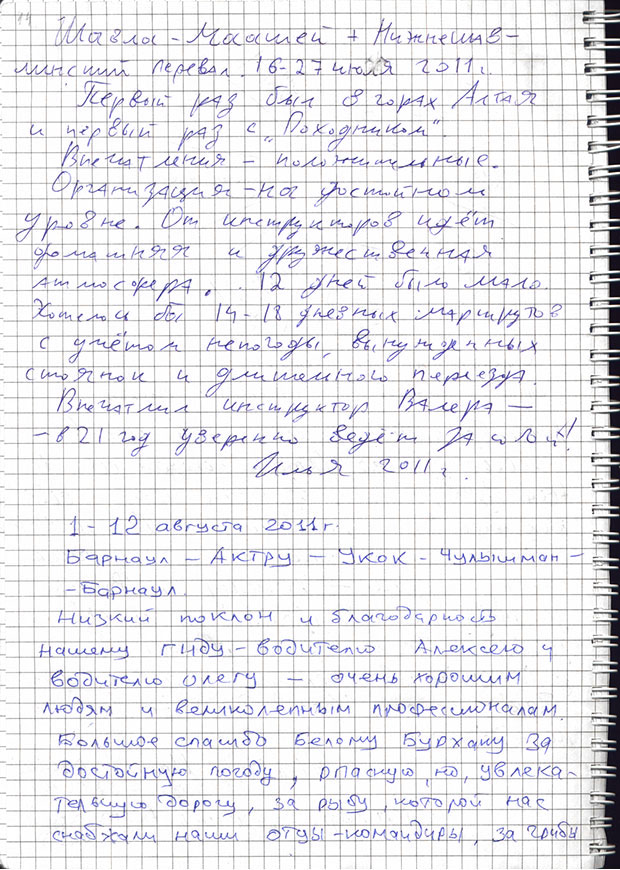 Шавла-Маашей + Нижнешав-
линский перевал. 16-27 июля 2011г.
Первый раз был в горах Алтая
и первый раз с „Походником"
Впечатления - положительные.
Организация - на достойном
уровне. От инструкторов идёт
домашняя и дружественная
атмосфера. 12 дней было мало.
Хотелось бы 14-18 дневных маршрутов
с учётом непогоды, вынужденных
стоянок и длительного переезда.
Впечатлил инструктор Валера —
- в 21 год уверенно ведёт за собой!
Илья 2011г.
1 - 12 августа 2011г.
Барнаул - Актру - Укок - Чулышман -
- Барнаул.
Низкий поклон и благодарность
нашему гиду-водителю Алексею и
водителю Олегу — очень хорошим
людям и великолепным профессионалам.
Большое спасибо Белому Бурхану за
достойную погоду, опасную, но, увлека-
тельную дорогу, за рыбу, которой нас
снабжали наши отцы-командиры, за грибы